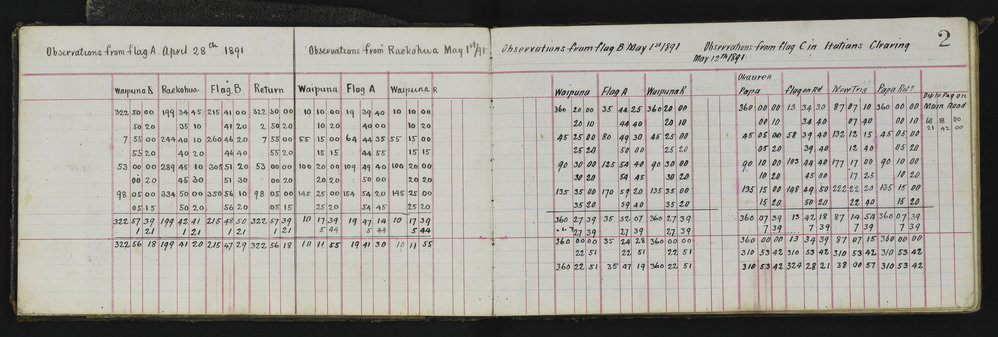 Observations from flag A April 28th 1891
Waipuna B Raekohua Flag B Return
322 50 00 199 34 45 215 41 00 322 50 00
50 20 35 10 41 20 2 50 20
7 55 00 244 40 10 260 46 20 7 55 00
55 20 40 20 46 40 55 20
53 00 00 289 45 10 305 51 20 53 00 00
00 20 45 30 51 30 00 20
98 05 00 334 50 00 350 56 10 98 05 00
05 15 50 20 56 20 05 15
322 57 39 199 42 41 215 48 50 322 57 39
1 21 1 21 1 21 1 21
322 56 18 199 41 20 215 47 29 322 56 18
Observations from Raekohua May 1st/91
Waipuna Flag A Waipuna R
10 10 00 19 39 40 10 10 00
10 20 40 00 10 20
55 15 00 64 44 35 55 15 00
15 15 44 55 15 15
100 20 00 109 49 40 100 20 00
20 20 50 00 20 20
145 25 00 154 54 20 145 25 00
25 20 54 45 25 20
10 17 39 19 47 14 10 17 39
5 44 5 44 5 44
10 11 55 19 41 30 10 11 55
Observations from flag B May 1st 1891
Waipuna Flag A Waipuna R
360 20 00 35 44 25 360 20 00
20 10 44 40 20 10
45 25 00 80 49 30 45 25 00
25 20 50 00 25 20
90 30 00 125 54 40 90 30 00
30 20 54 45 30 20
135 35 00 170 59 20 135 35 00
35 20 59 40 35 20
360 27 39 35 52 07 360 27 39
27 39 27 39 27 39
360 00 00 35 24 28 360 00 00
22 51 22 51 22 51
360 22 51 35 47 19 360 22 51
2
Observations from flag C in Italians Clearing
May 12th 1891
Okaurea
Papa Flag on Rd New Trig Papa Rtn
Dip to Peg on
Main Road
360 00 00 13 34 30 87 07 10 360 00 00
00 10 34 40 07 40 00 10
45 05 00 58 39 40 132 12 15 45 05 00
05 20 39 40 12 40 05 20
90 10 00 103 44 40 177 17 00 90 10 00
10 20 45 00 17 25 10 20
135 15 00 148 49 50 222 22 20 135 15 00
15 20 50 20 22 40 15 20
360 07 39 13 42 18 87 14 54 360 07 39
7 39 7 39 7 39 7 39
360 00 00 13 34 39 87 07 15 360 00 00
310 53 42 310 53 42 310 53 42 310 53 42
310 53 42 324 28 21 38 00 57 310 53 42
68 18 00
21 42 00